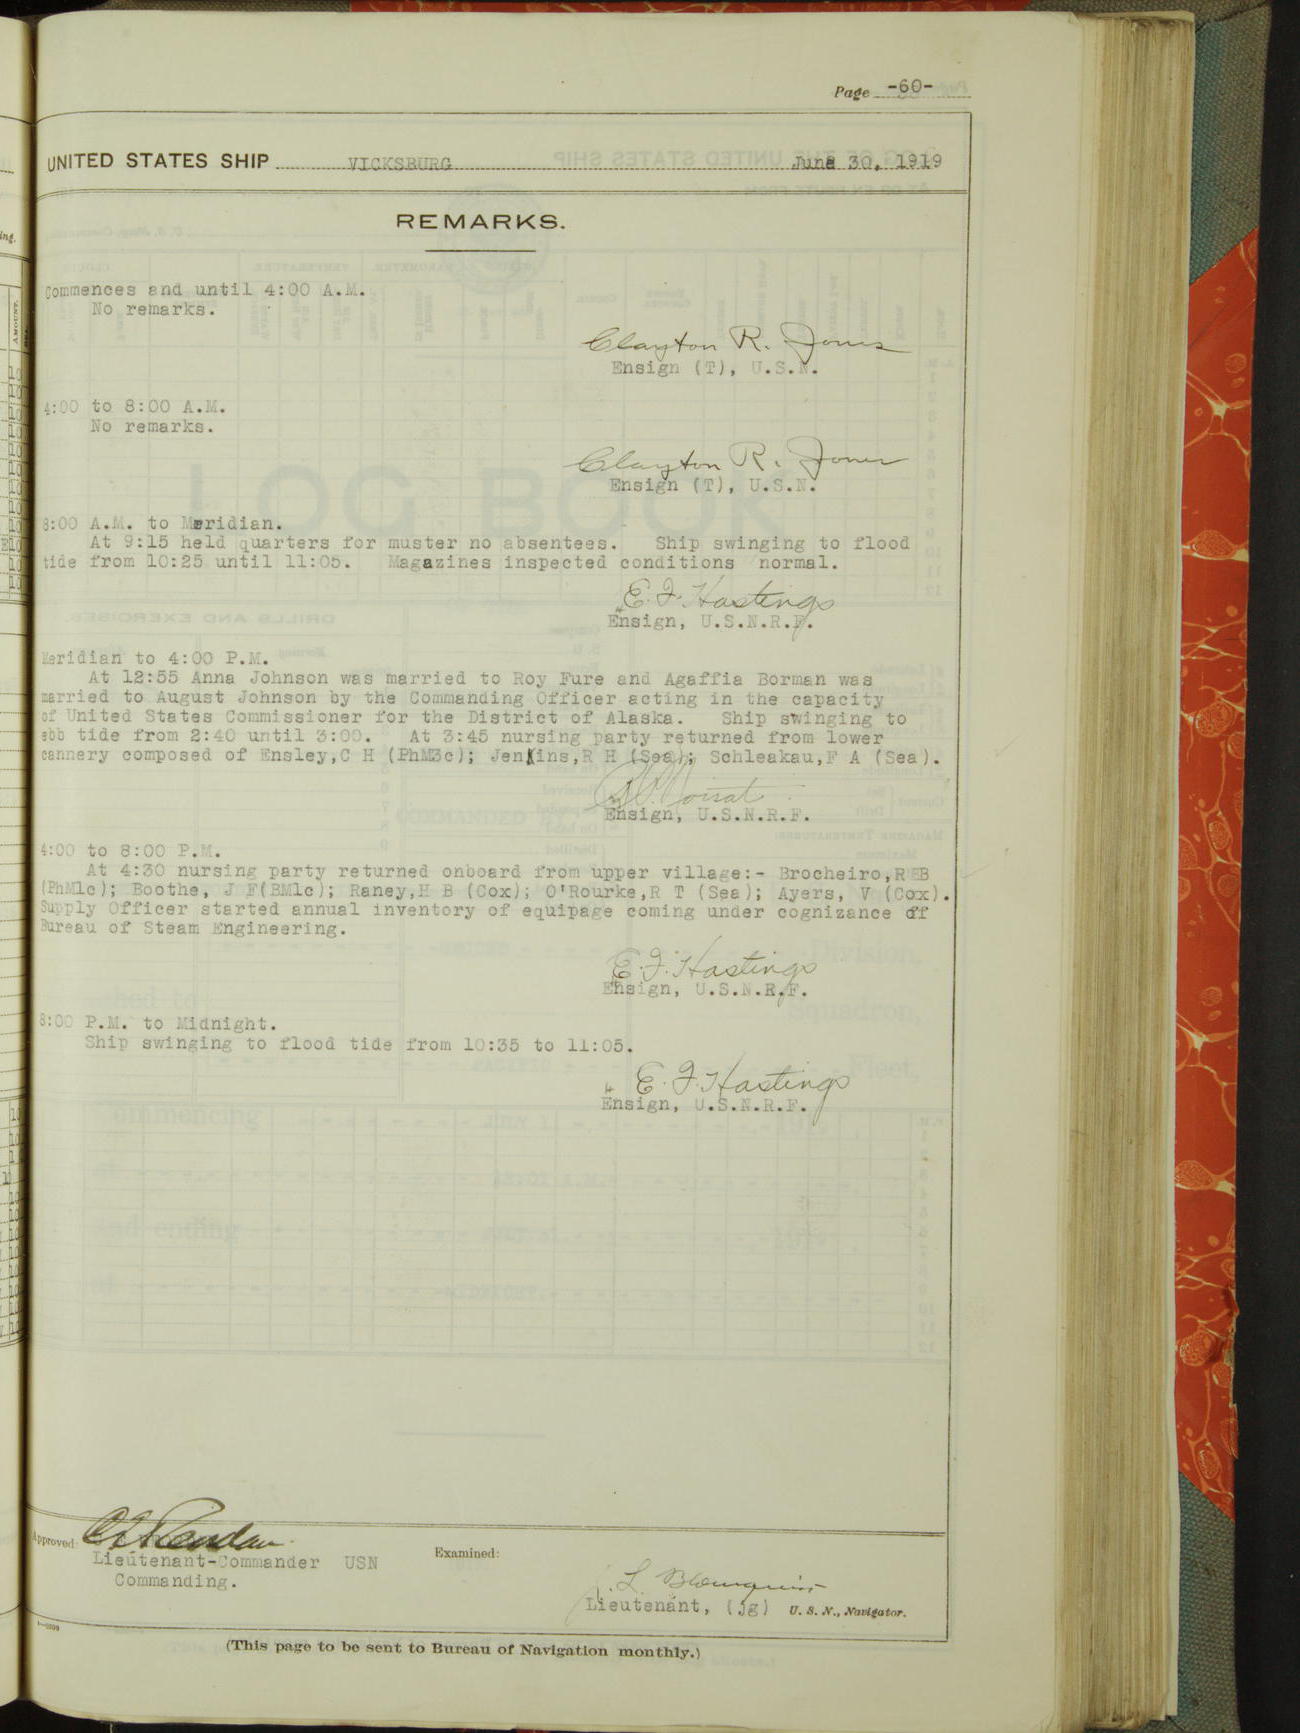 Page -60-
UNITED STATES SHIP VICKSBURG June 30, 1919
REMARKS.
Commences and until 4:00 A.M.
No remarks.
Clayton R. Jones
Ensign (T), U.S.N.
4:00 to 8:00 A.M.
No remarks.
Clayton R. Jones
Ensign (T), U.S.N.
8:00 A.M. to Meridian.
At 9:15 held quarters for muster no absentees. Ship swinging to flood
tide from 10:25 until 11:05. Magazines inspected conditions normal.
E. F. Hastings
Ensign, U.S.N.R.F.
Meridian to 4:00 P.M.
At 12:55 Anna Johnson was married to Roy Fure and Agaffia Borman was
married to August Johnson by the Commanding Officer acting in the capacity
of United States Commissioner for the District of Alaska. Ship swinging to
ebb tide from 2:40 until 3:00. At 3:45 nursing party returned from lower
cannery composed of Ensley,C H (PhM3c); Jenkins,R H (Sea); Schleakau,F A (Sea).
Ensign, U.S.N.R.F.
4:00 to 8:00 P.M.
At 4:30 nursing party returned onboard from upper village:- Brocheiro,R B
(PhM1c); Boothe, J F(BM1c); Raney,H B (Cox); O'Rourke,R T (Sea); Ayers, V (Cox).
Supply Officer started annual inventory of equipage coming under cognizance of
Bureau of Steam Engineering.
E. F. Hastings
Ensign, U.S.N.R.F.
8:00 P.M. to Midnight.
Ship swinging to flood tide from 10:35 to 11:05.
E. F. Hastings
Ensign, U.S.N.R.F.
Approved:
Lieutenant-Commander USN
Commanding.
Examined:
Lieutenant, (jg) U. S. N., Navigator.
(This page to be sent to Bureau of Navigation monthly.)